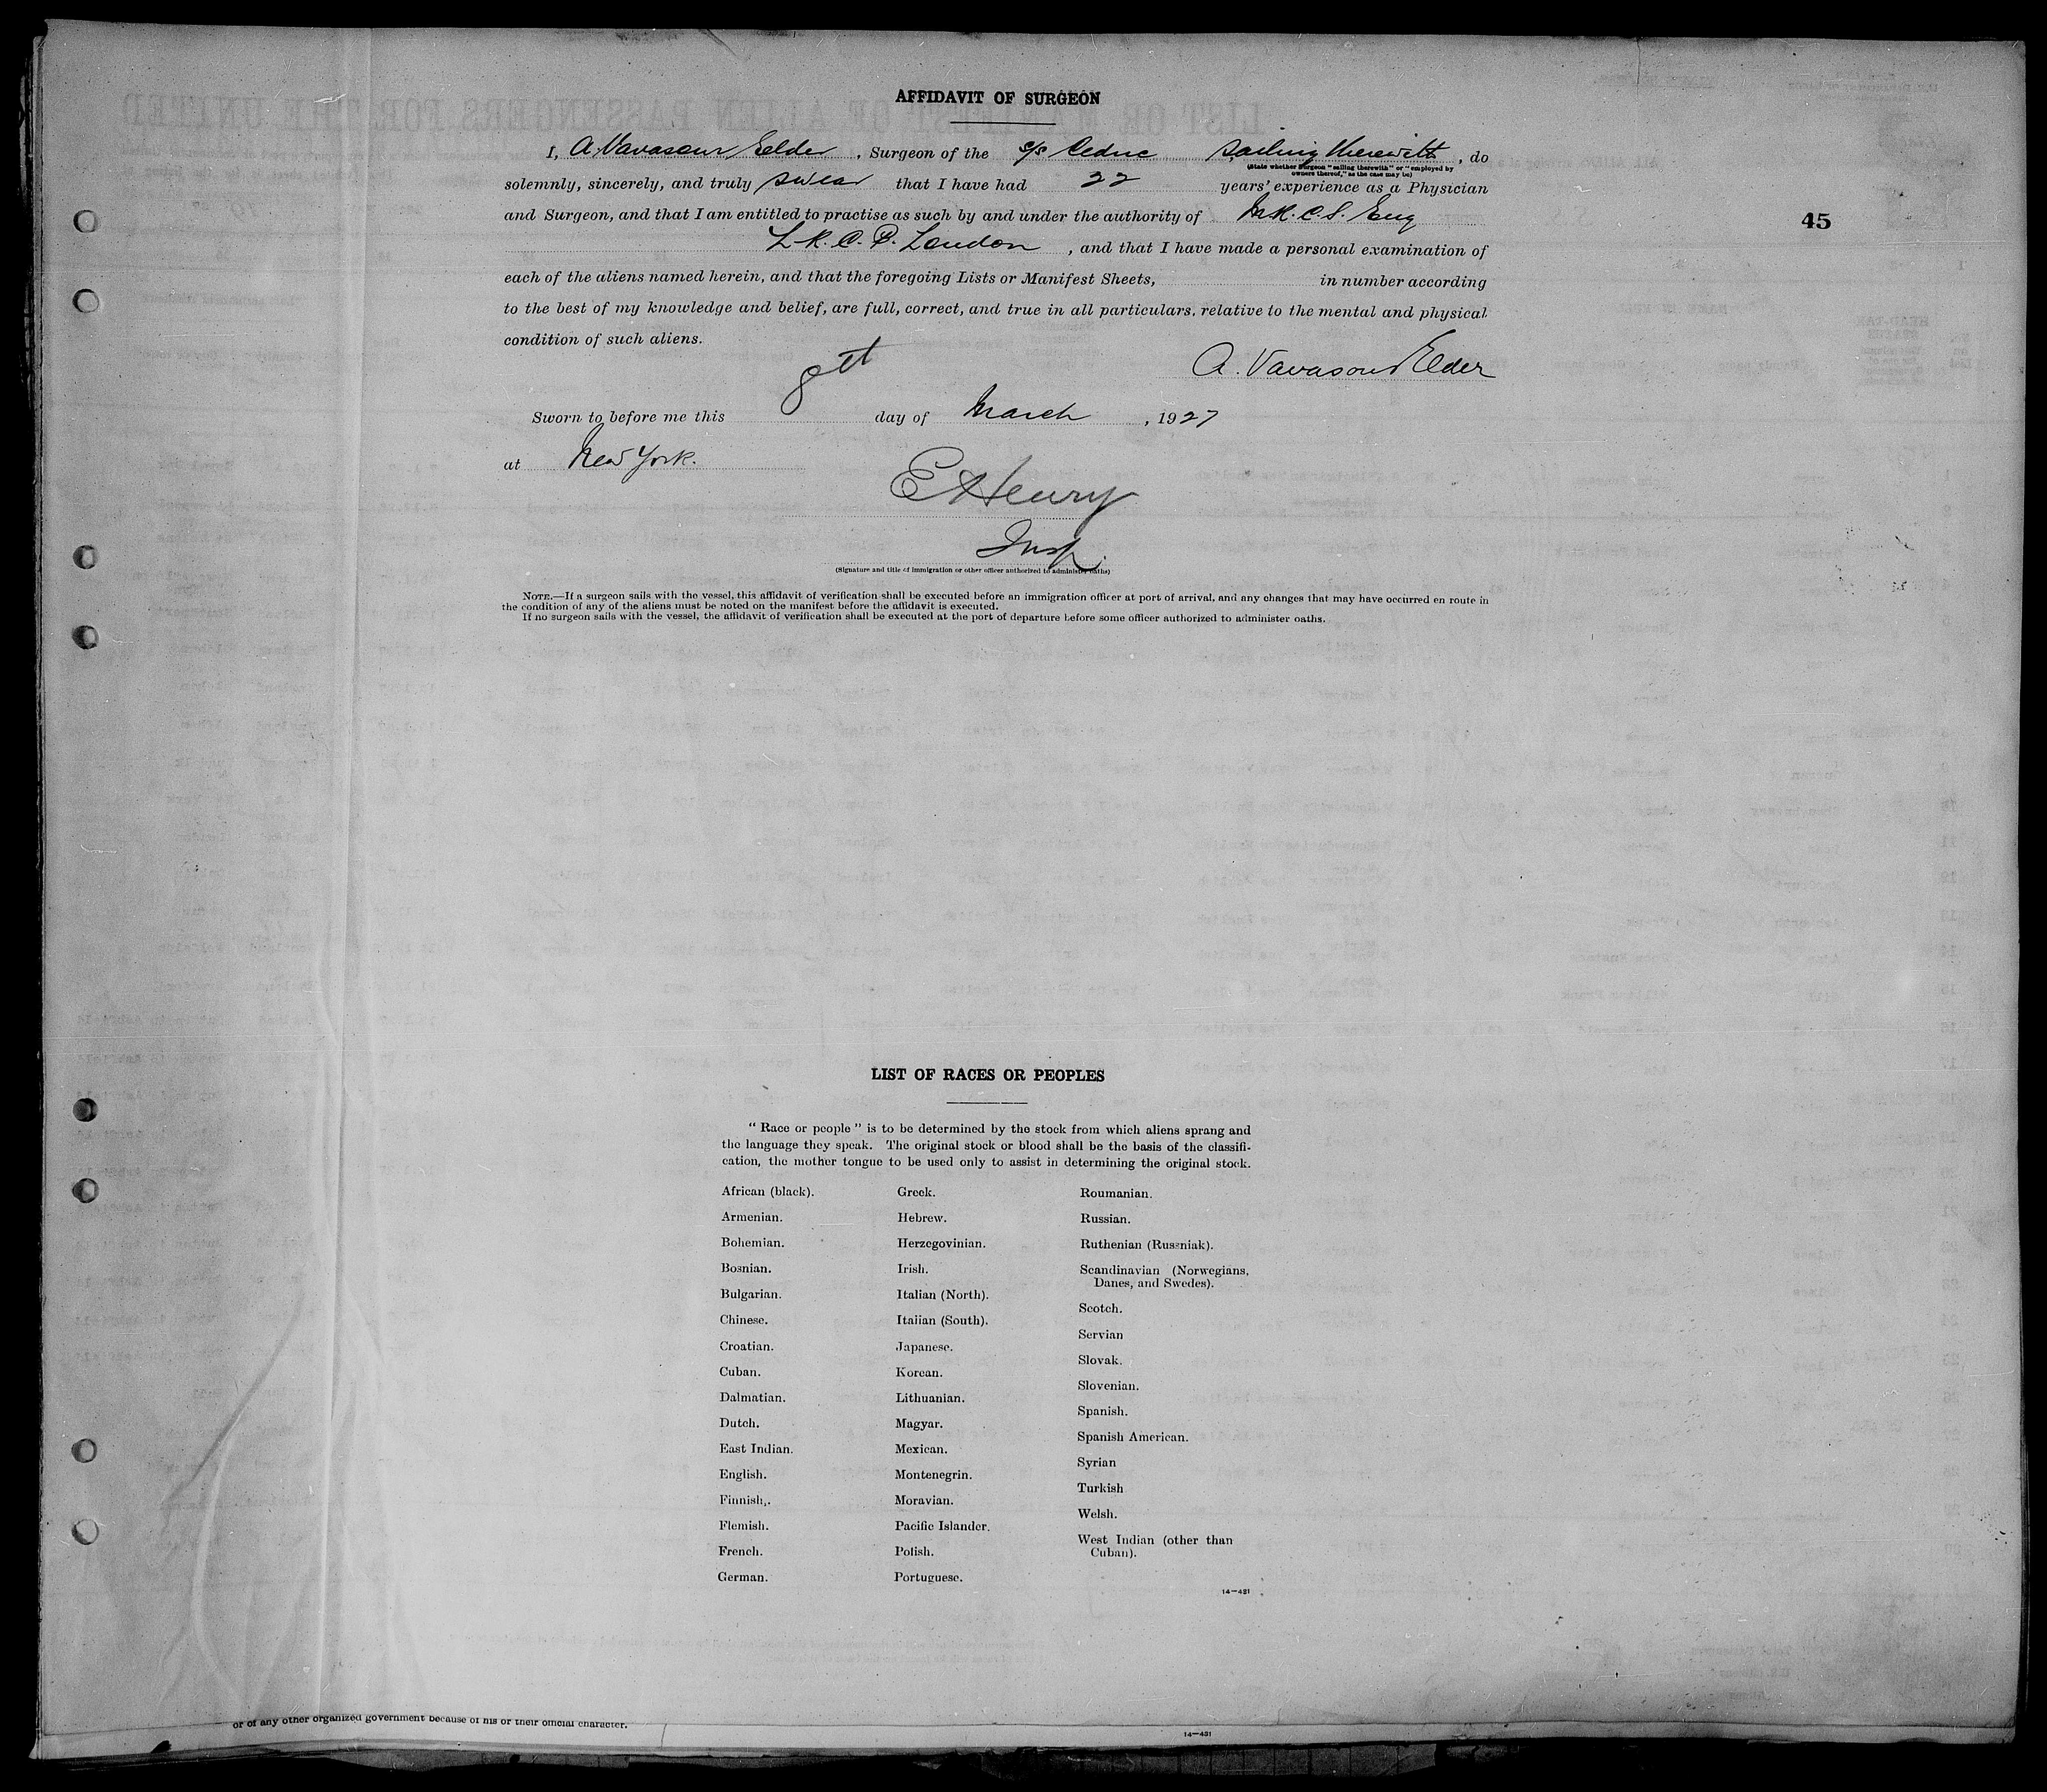 AFFIDAVIT OF SURGEON
I, A. Vavasour Elder, Surgeon of the s/s Cedric sailing therewith, do
(State whether Surgeon "sailing therewith" or "employed by
owners thereof," as the case may be)
solemnly, sincerely, and truly swear that I have had 22 years' experience as a Physician
and Surgeon, and that I am entitled to practise as such by and under the authority of M.R.C.S. Eng
45
L.R.C.P. London, and that I have made a personal examination of
each of the aliens named herein, and that the foregoing Lists or Manifest Sheets, in number according
to the best of my knowledge and belief, are full, correct, and true in all particulars, relative to the mental and physical
condition of such aliens.
A. Vavasour Elder
Sworn to before me this 8th day of March, 1927
at New York.
E Henry
Insp.
(Signature and title of immigration or other officer authorized to administer oaths)
NOTE.—If a surgeon sails with the vessel, this affidavit of verification shall be executed before an immigration officer at port of arrival, and any changes that may have occurred en route in
the condition of any of the aliens must be noted on the manifest before the affidavit is executed.
If no surgeon sails with the vessel, the affidavit of verification shall be executed at the port of departure before some officer authorized to administer oaths.
LIST OF RACES OR PEOPLES
"Race or people" is to be determined by the stock from which aliens sprang and
the language they speak. The original stock or blood shall be the basis of the classifi-
cation, the mother tongue to be used only to assist in determining the original stock.
African (black).
Armenian.
Bohemian.
Bosnian.
Bulgarian.
Chinese.
Croatian.
Cuban.
Dalmatian.
Dutch.
East Indian.
English.
Finnish.
Flemish.
French.
German.
Greek.
Hebrew.
Herzegovinian.
Irish.
Italian (North).
Italian (South).
Japanese.
Korean.
Lithuanian.
Magyar.
Mexican.
Montenegrin.
Moravian.
Pacific Islander.
Polish.
Portuguese.
Roumanian.
Russian.
Ruthenian (Russniak).
Scandinavian (Norwegians,
Danes, and Swedes).
Scotch.
Servian
Slovak.
Slovenian.
Spanish.
Spanish American.
Syrian
Turkish
Welsh.
West Indian (other than
Cuban).
14—431
or of any other organized government because of his or their official character.
14—431